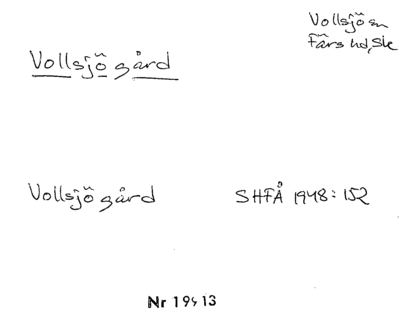 Vollsjö sn
Färs hd, Sk
Vollsjö gård
Vollsjö gård SHFÅ 1948:152
Nr 19913